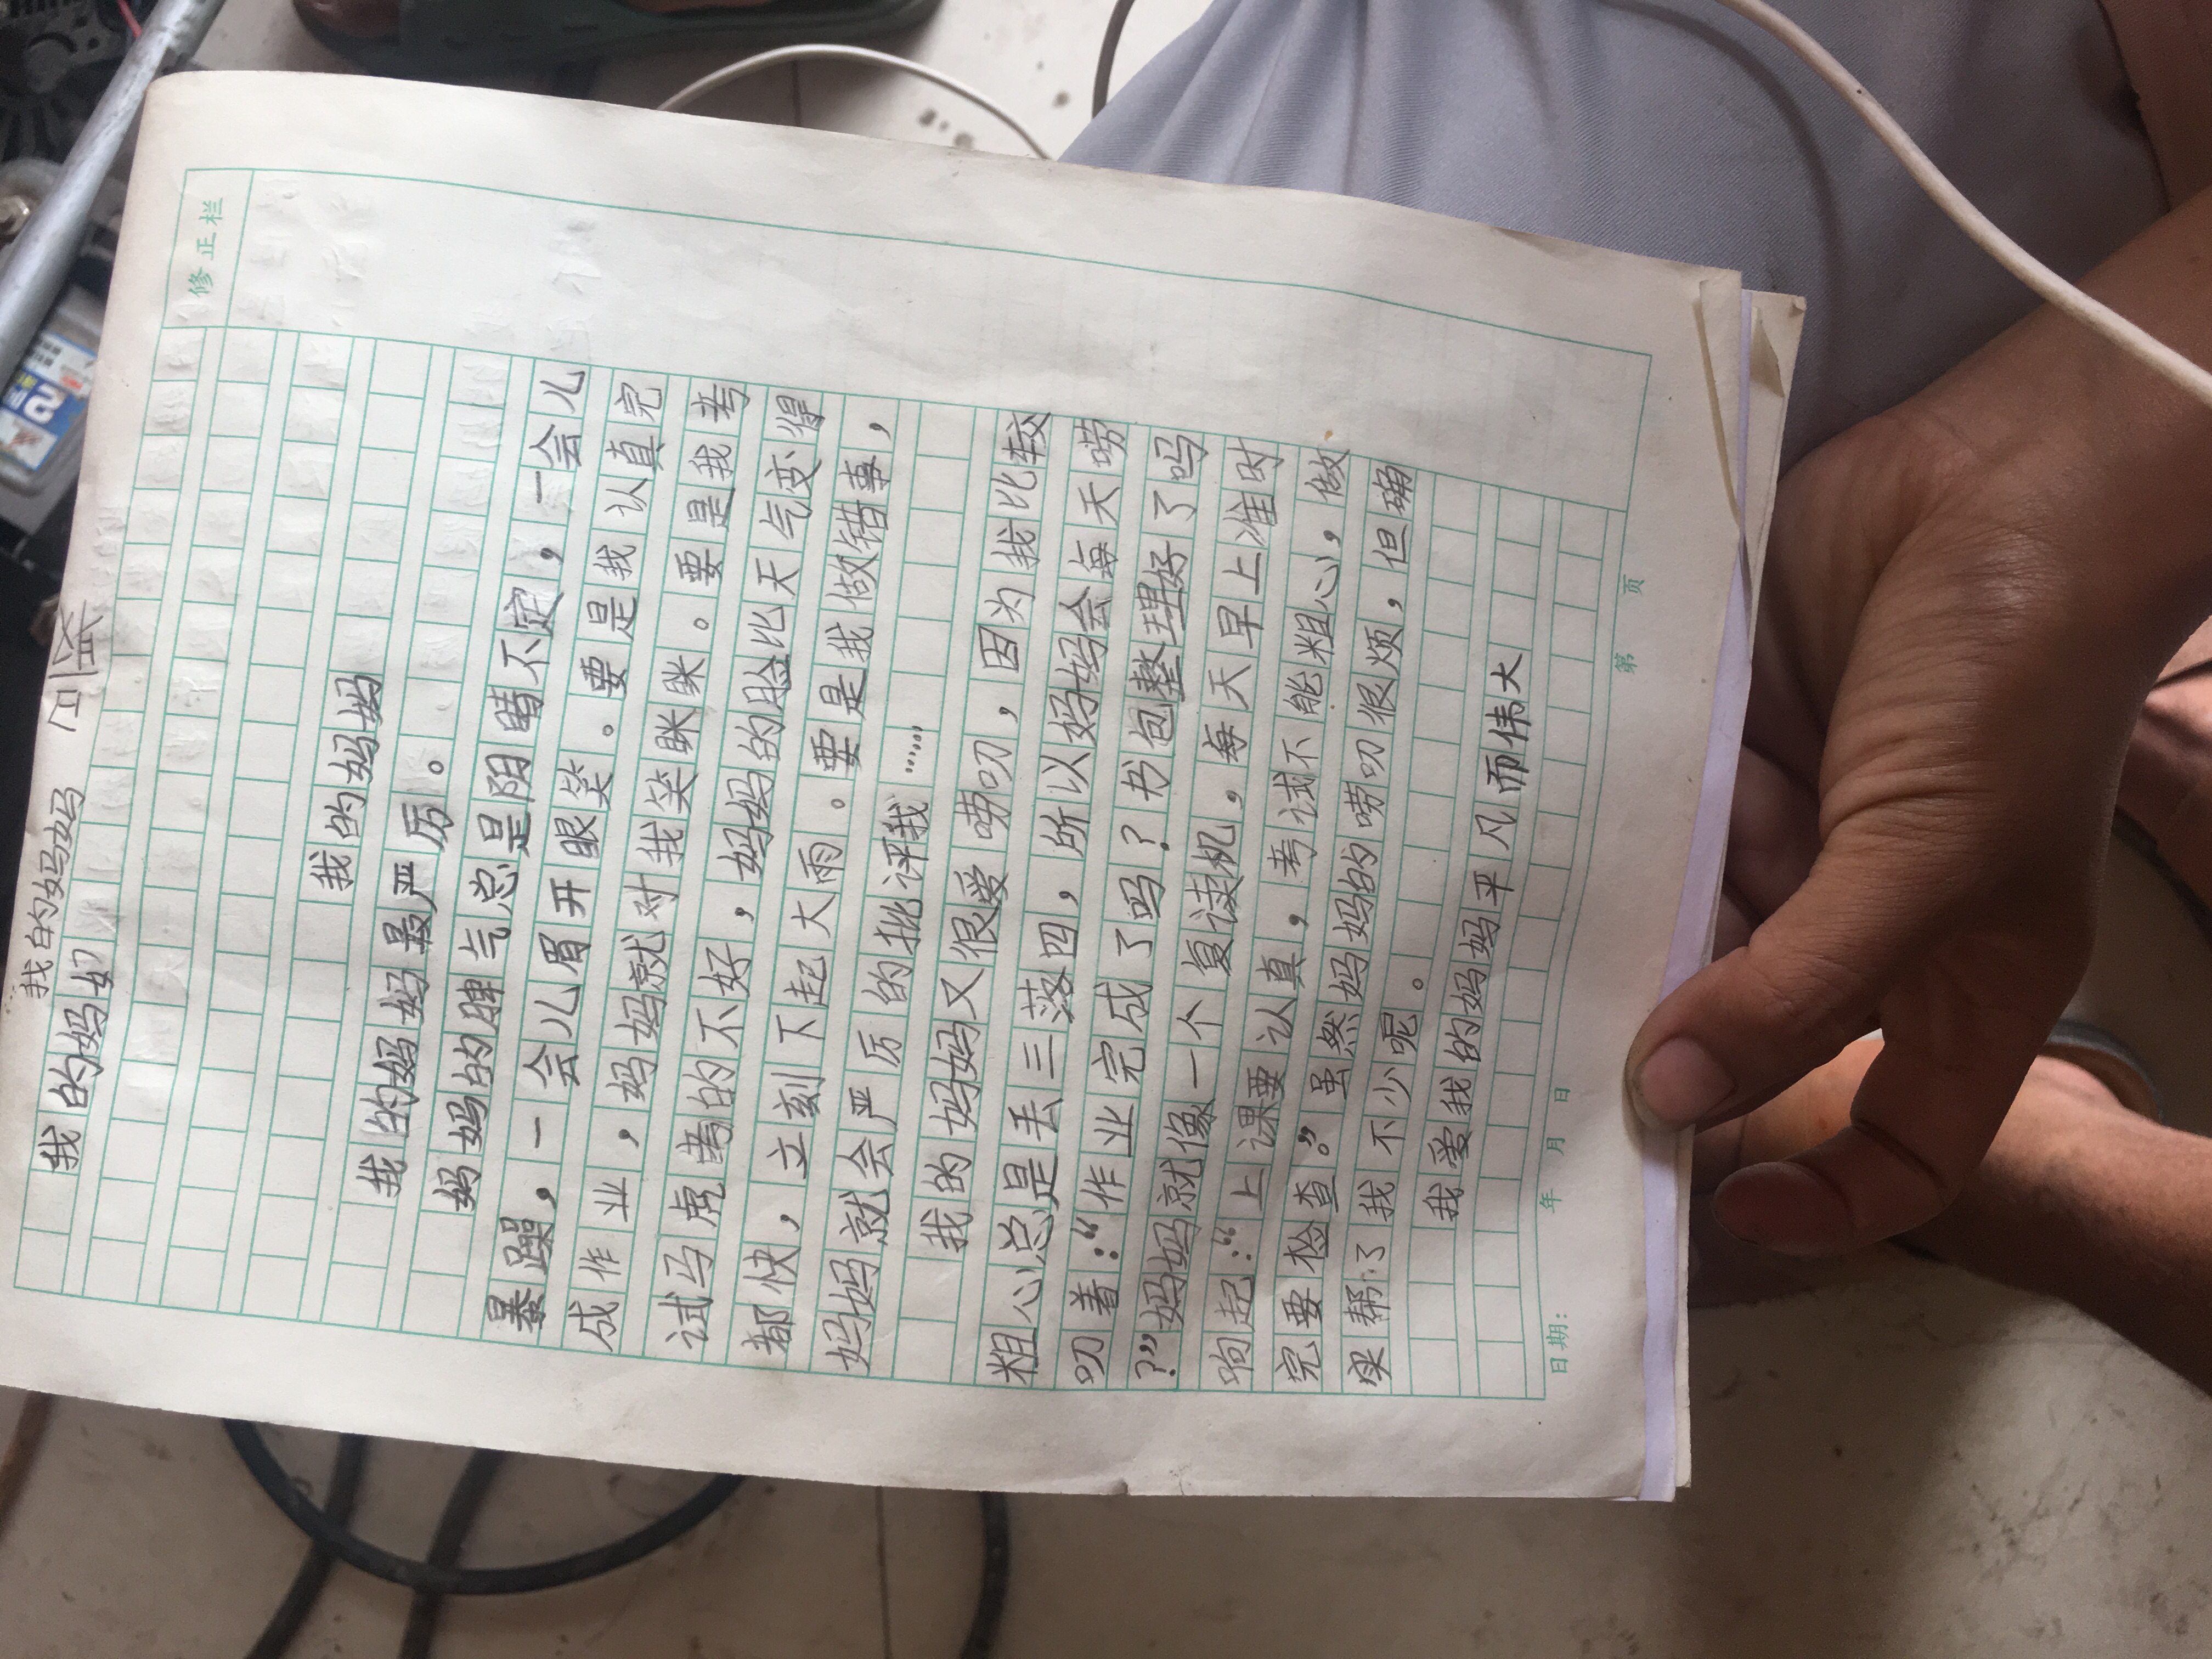 我的妈妈
我的妈妈
修正栏
我的妈妈
我的妈妈最严厉。
妈妈的脾气总是阴晴不定，一会儿
暴躁，一会儿眉开眼笑。要是我认真完
成作业，妈妈就对我笑眯眯。要是我考
试马虎考的不好，妈妈的脸比天气变得
都快，立刻下起大雨。要是我做错事，
妈妈就会严厉的批评我……
我的妈妈又很爱唠叨，因为我比较
粗心总是丢三落四，所以妈妈会每天唠
叨着：“作业完成了吗？书包整理好了吗
？”妈妈就像一个复读机，每天早上准时
响起：“上课要认真，考试不能粗心，做
完要检查。”虽然妈妈的唠叨很烦，但确
实帮了我不少呢。
我爱我的妈妈平凡而伟大
日期： 年 月 日
第 页
2